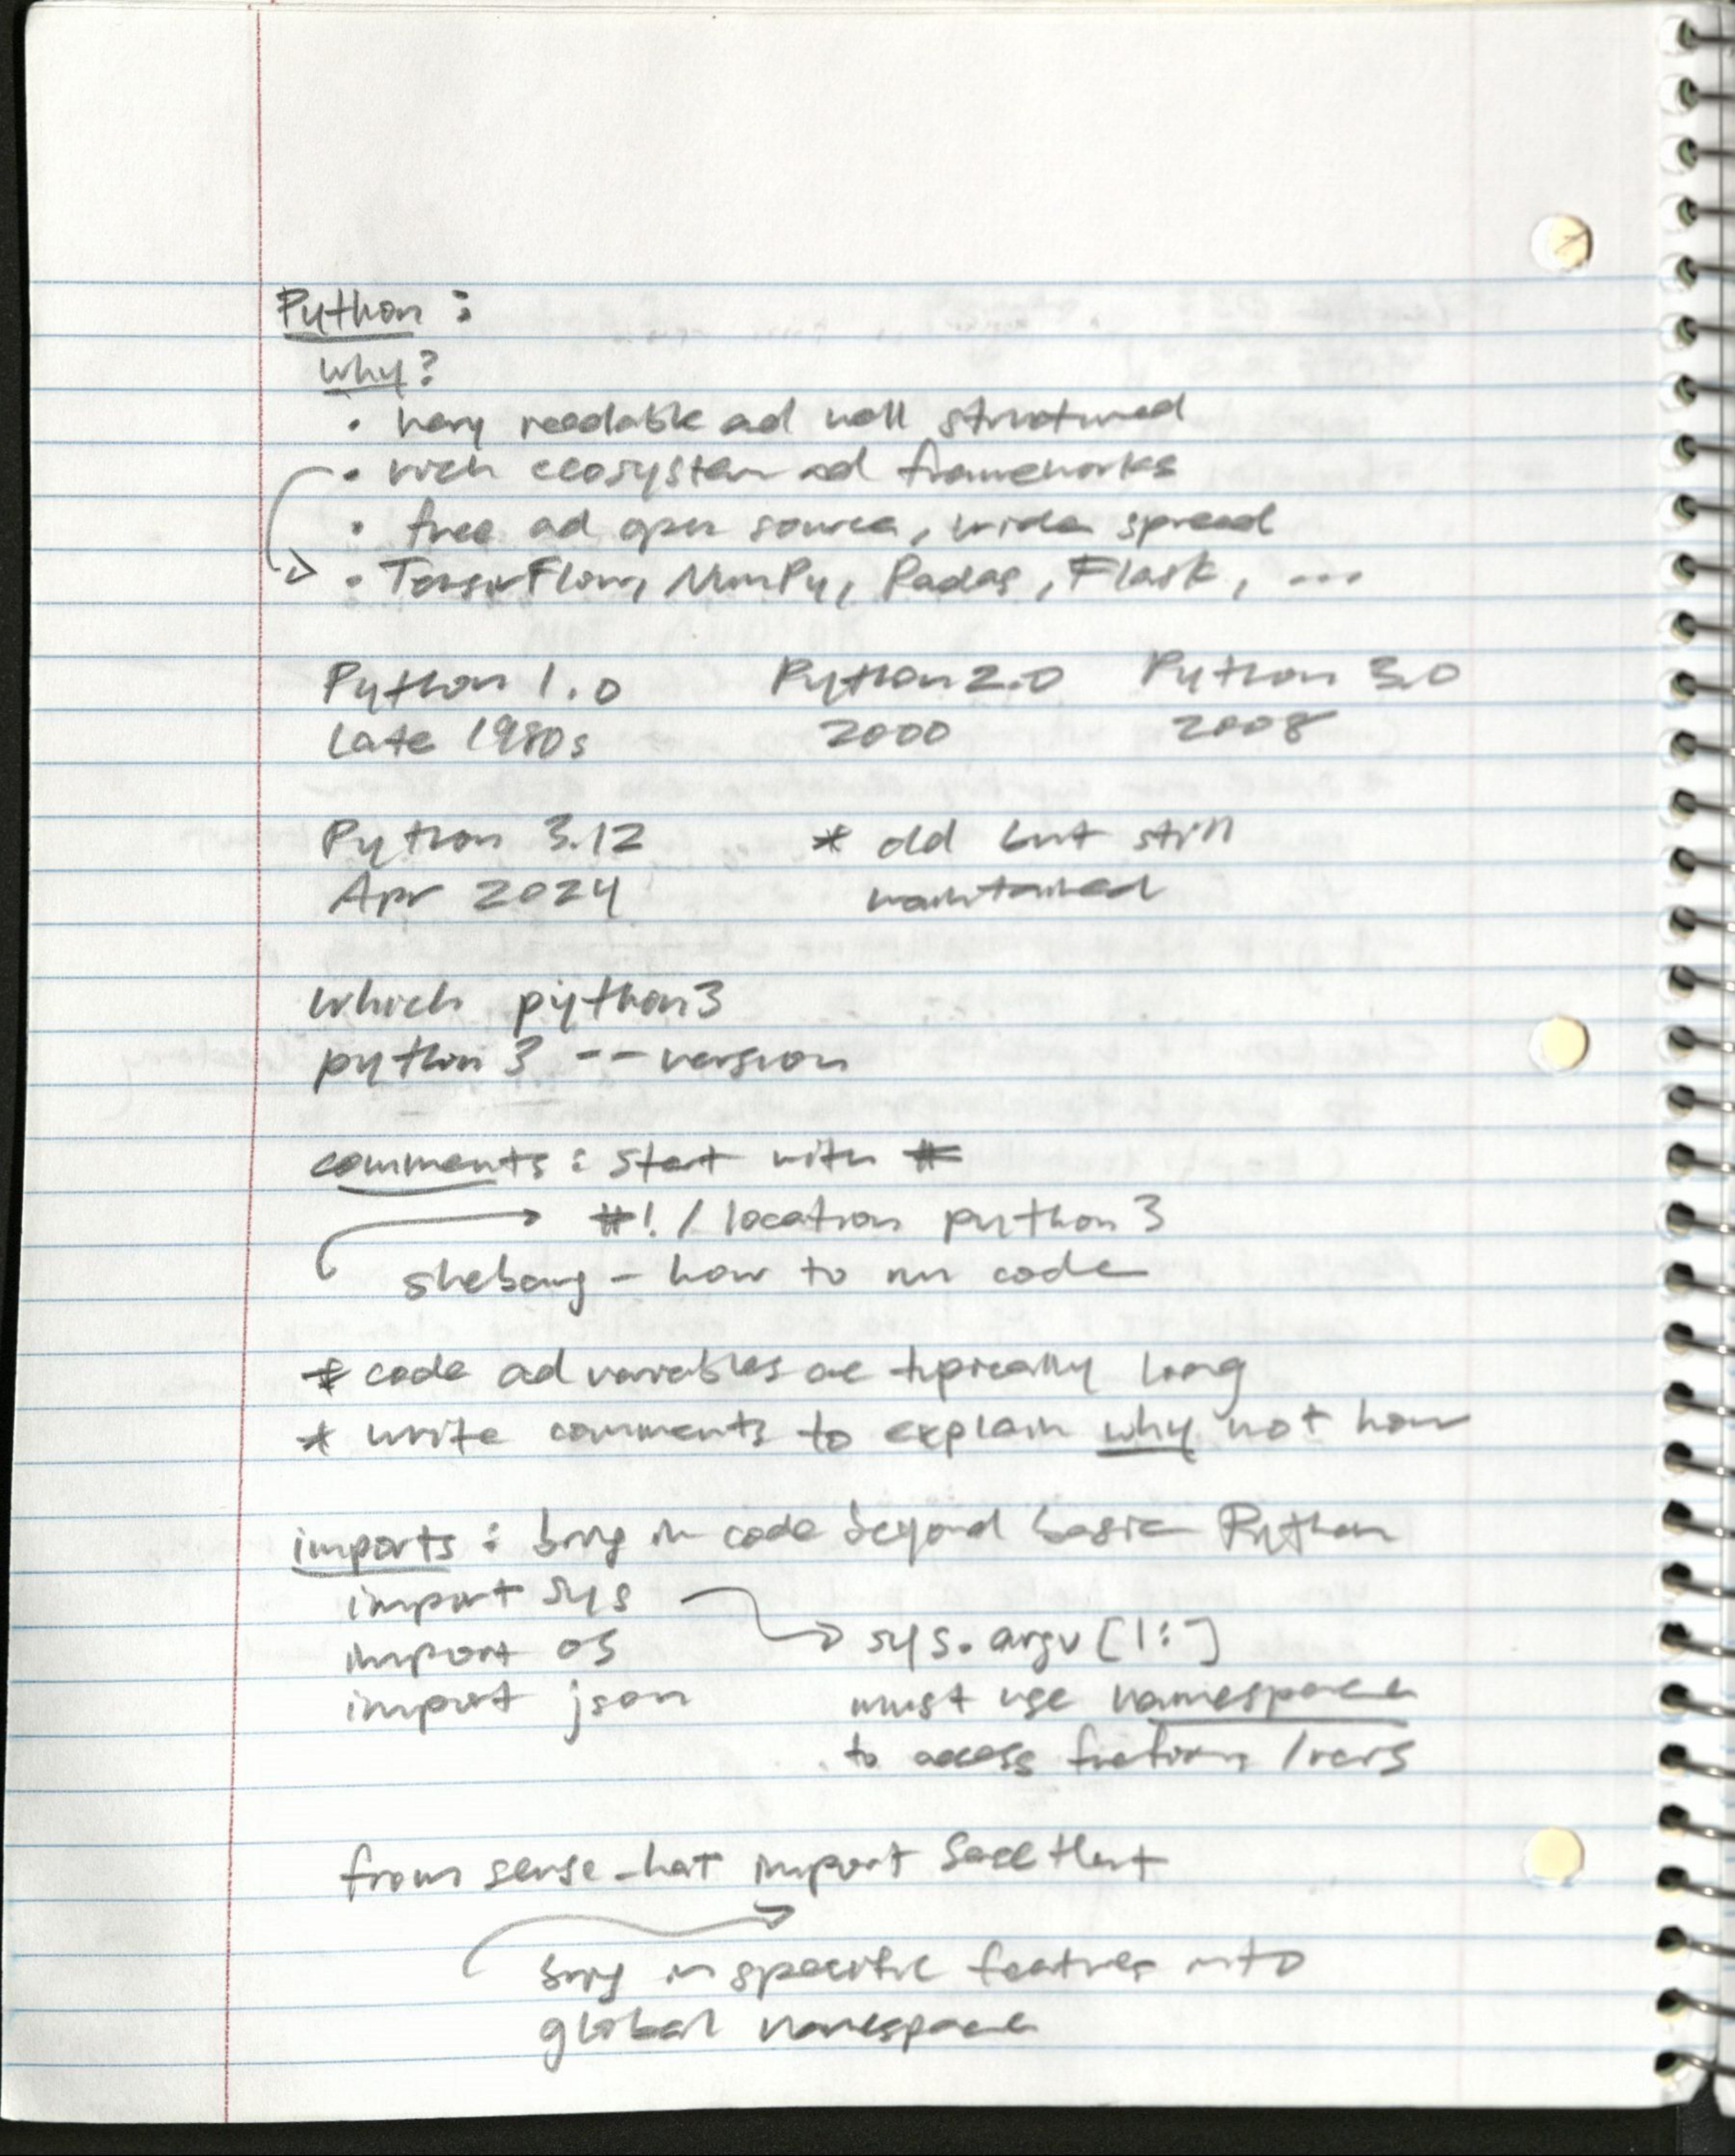 Python :
Why?
• very readable ad well structured
• rich ecosystem ad frameworks
• free ad open source, wide spread
• TensorFlow, NumPy, Padas, Flask, ...
Python 1.0 Python 2.0 Python 3.0
Late 1980s 2000 2008
Python 3.12 * old but still
Apr 2024 maintained
which python3
python3 --version
comments : start with #
#! / location python3
shebang - how to run code
* code ad variables are typically long
* write comments to explain why not how
imports : bring in code beyond basic Python
import sys
sys.argv [1:]
import os
import json must use namespace
to access functions / vars
from sense_hat import SenseHat
bring in specific features into
global namespace